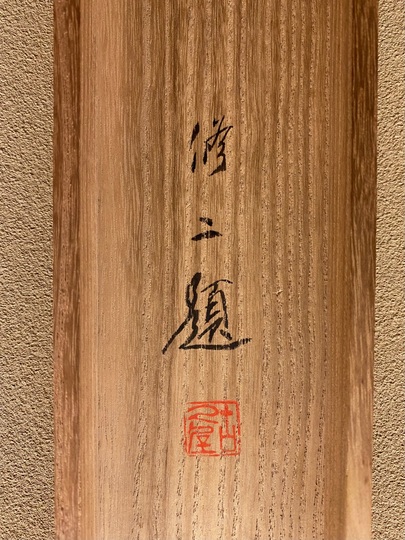 修二題